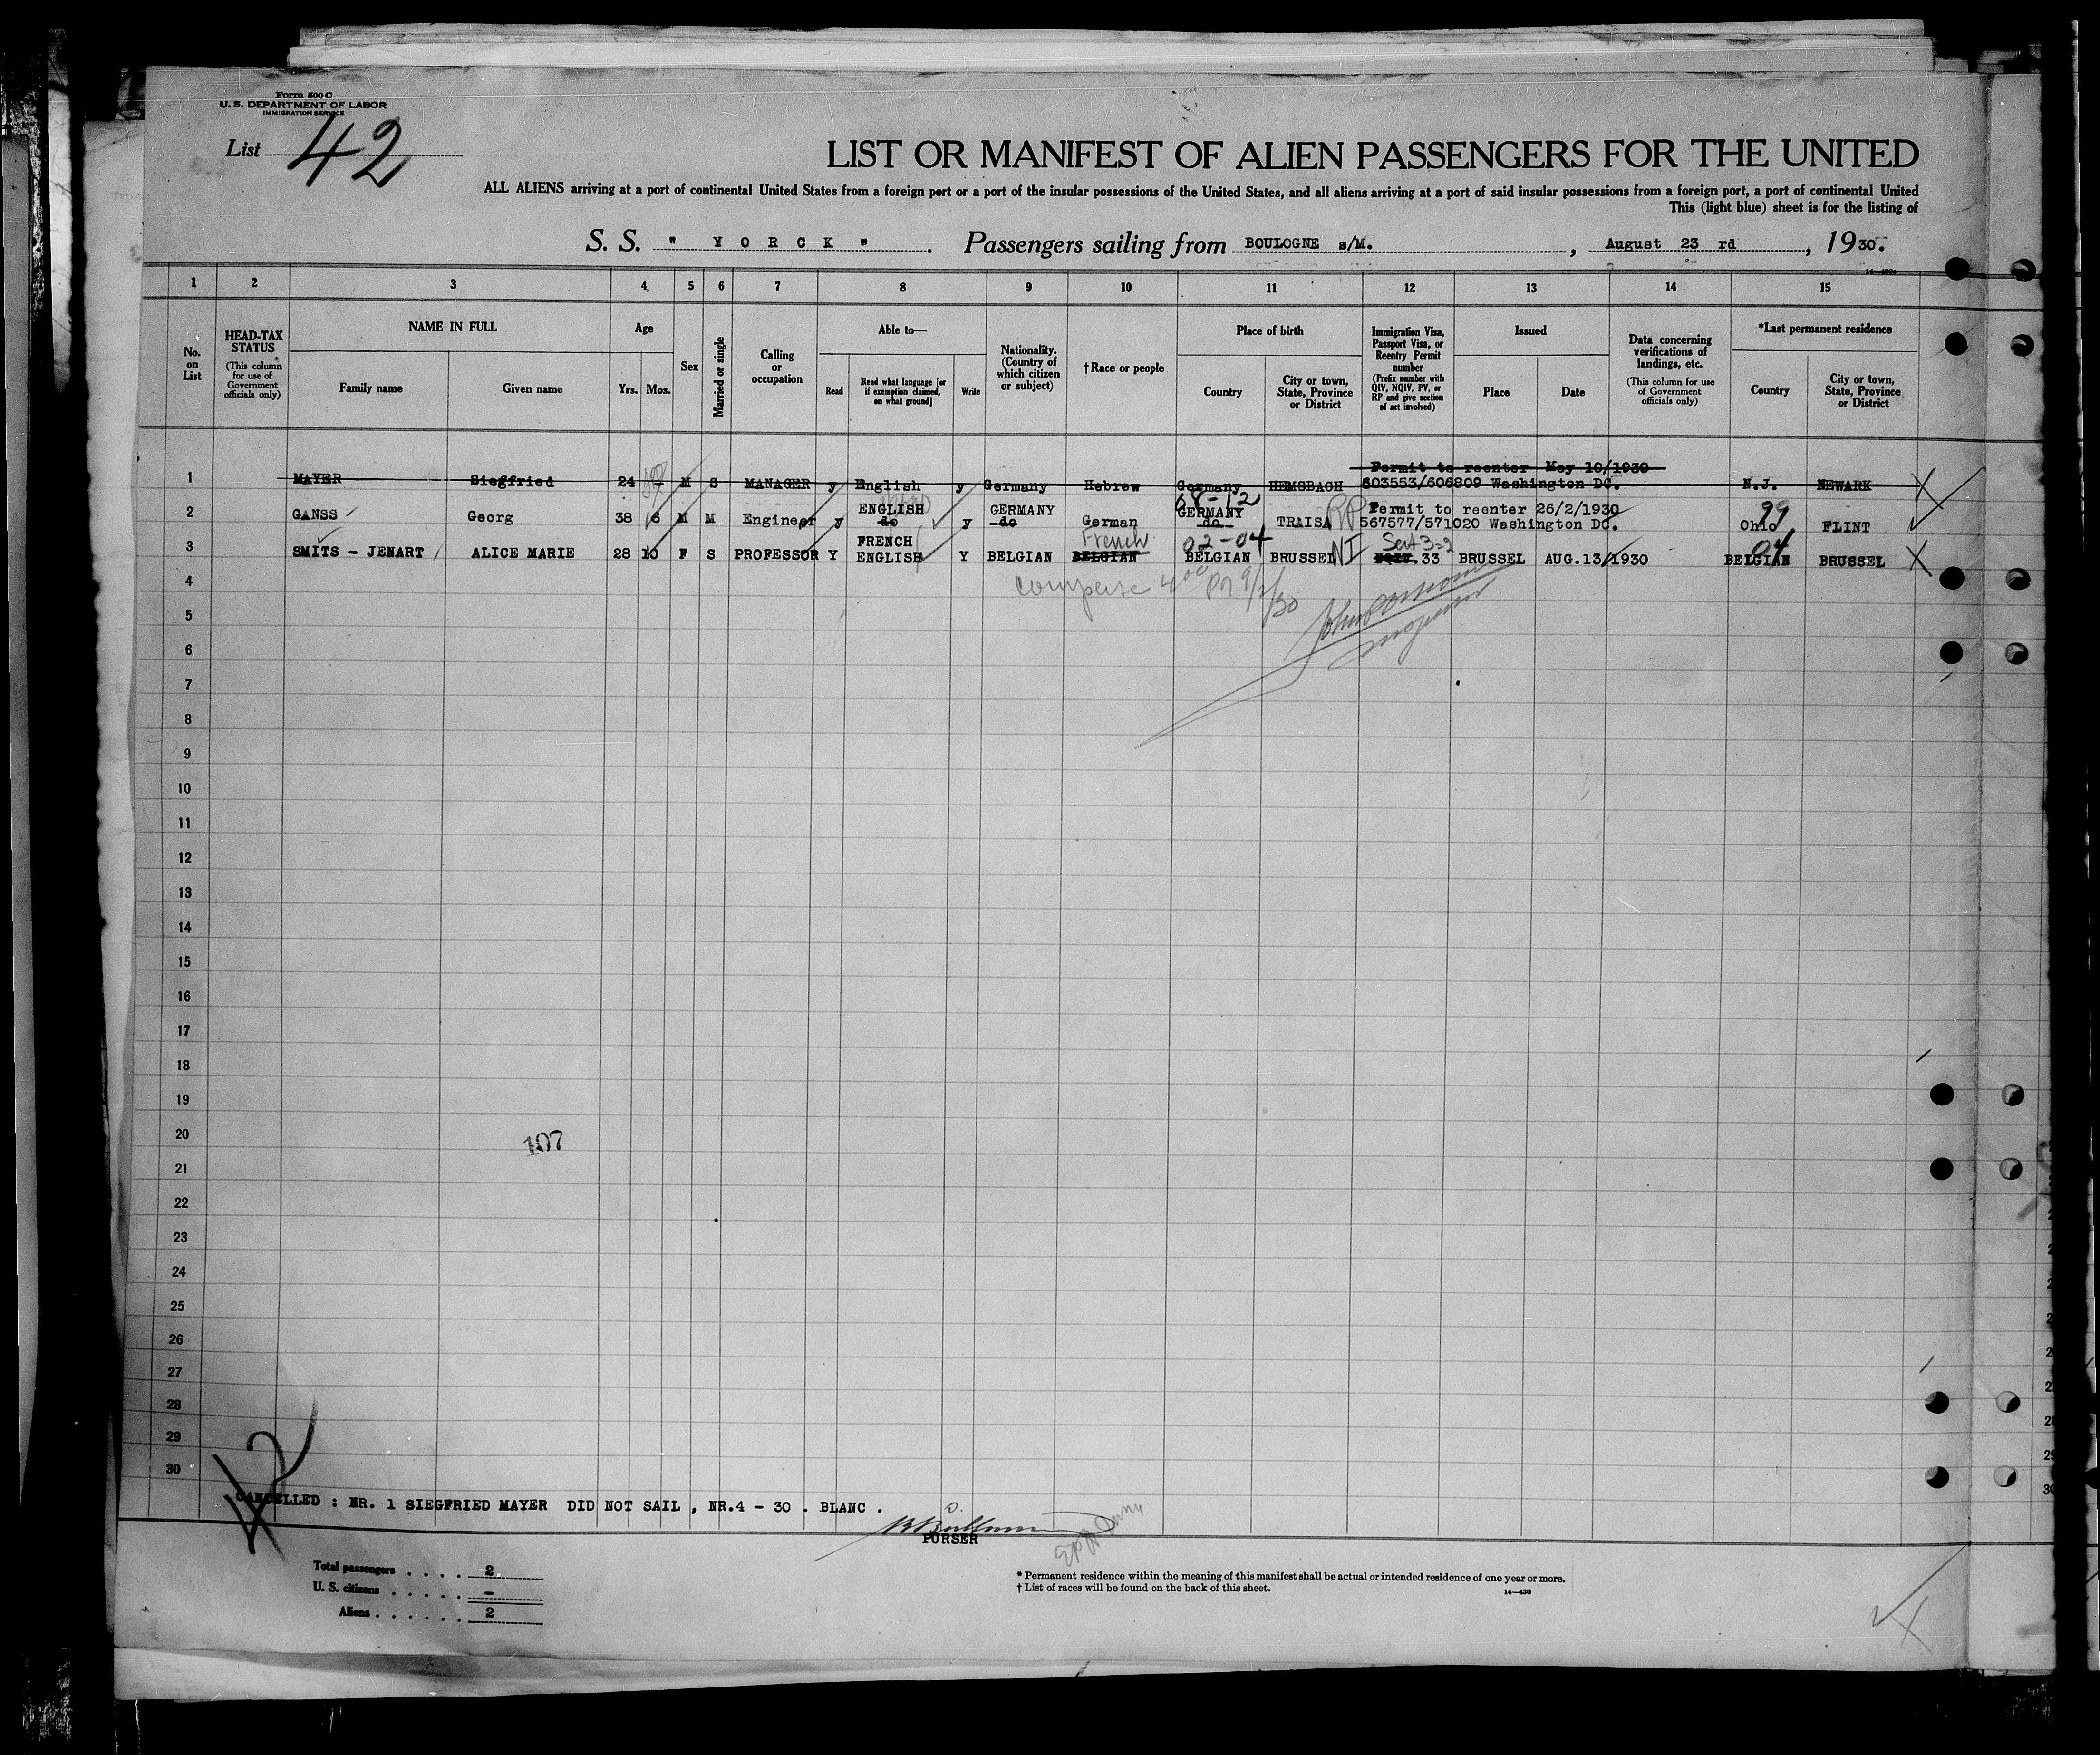 Form 500 C
U. S. DEPARTMENT OF LABOR
IMMIGRATION SERVICE
List 42
LIST OR MANIFEST OF ALIEN PASSENGERS FOR THE UNITED
ALL ALIENS arriving at a port of continental United States from a foreign port or a port of the insular possessions of the United States, and all aliens arriving at a port of said insular possessions from a foreign port, a port of continental United
This (light blue) sheet is for the listing of
S. S. " Y O R C K ". Passengers sailing from BOULOGNE s/M., August 23 rd, 1930.
1 2 3 4 5 6 7 8 9 10 11 12 13 14 15
No. on List
HEAD-TAX STATUS (This column for use of Government officials only)
NAME IN FULL
Family name Given name
Age
Yrs. Mos.
Sex
Married or single
Calling or occupation
Able to—
Read Read what language [or if exemption claimed, on what ground] Write
Nationality. (Country of which citizen or subject)
†Race or people
Place of birth
Country City or town, State, Province or District
Immigration Visa, Passport Visa, or Reentry Permit number (Prefix number with QIV, NQIV, PV, or RP and give section of act involved)
Issued
Place Date
Data concerning verifications of landings, etc. (This column for use of Government officials only)
*Last permanent residence
Country City or town, State, Province or District
Permit to reenter May 10/1930
1 MAYER Siegfried 24 - M S MANAGER y English y Germany Hebrew Germany HEMSBACH 603553/606809 Washington DC. N.J. NEWARK X
68-12 99
ENGLISH GERMANY GERMANY RP Permit to reenter 26/2/1930
2 GANSS Georg 38 6 M M Engineer y do y do German do TRAISA 567577/571020 Washington DC. Ohio FLINT
FRENCH French 02-04 Sect 3=2 04
3 SMITS - JENART ALICE MARIE 28 10 F S PROFESSOR Y ENGLISH Y BELGIAN BELGIAN BELGIAN BRUSSEL NI NQIV.33 BRUSSEL AUG.13/1930 BELGIAN BRUSSEL X
4
5
6
7
8
9
10
11
12
13
14
15
16
17
18
19
20
107
21
22
23
24
25
26
27
28
29
30
42
CANCELLED : NR. 1 SIEGFRIED MAYER DID NOT SAIL , NR.4 - 30 . BLANC .
PURSER
Total passengers . . . . 2
U. S. citizens . . . . . -
Aliens . . . . . . 2
* Permanent residence within the meaning of this manifest shall be actual or intended residence of one year or more.
† List of races will be found on the back of this sheet.
14—430